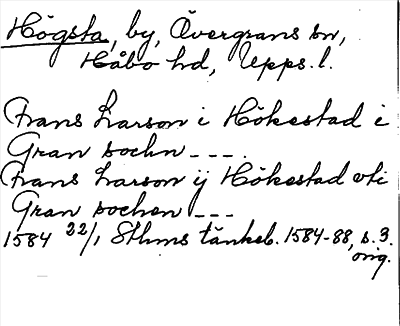 Högsta, by, Övergrans sn,
Håbo hd, Upps. l.
Frans Larson i Hökestad i
Gran sochn ---.
Frans Larson ij Hökestad vti
Gran sochen ---
1584 22/1 Sthms tänkeb. 1584-88, s. 3.
orig.